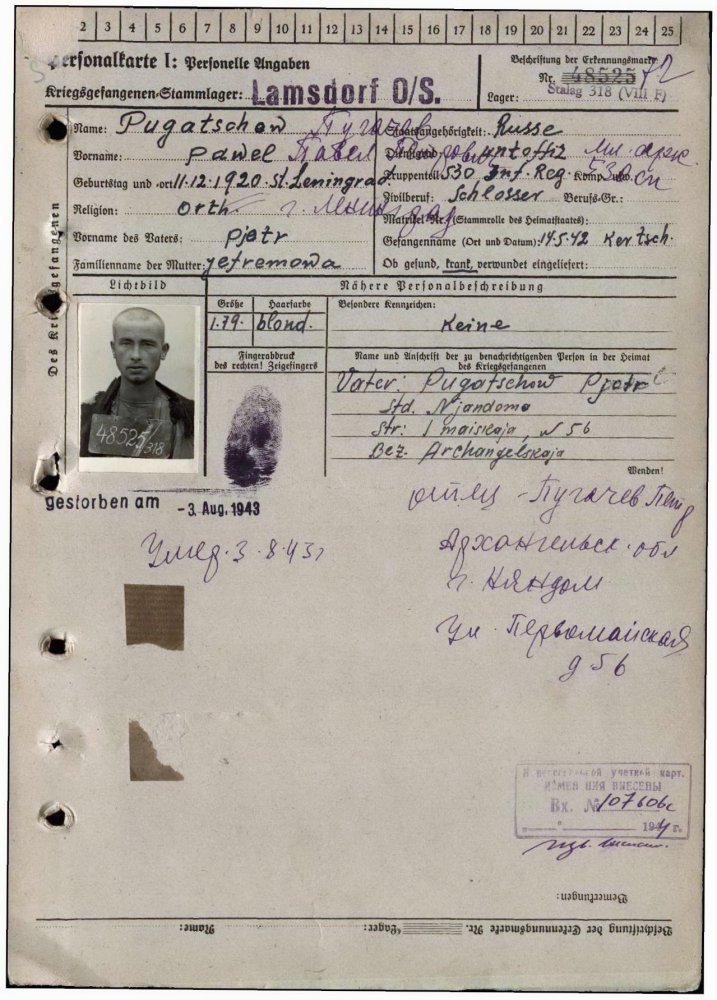 2 3 4 5 6 7 8 9 10 11 12 13 14 15 16 17 18 19 20 21 22 23 24 25
Personalkarte I: Personelle Angaben
Beschriftung der Erkennungsmarke
Nr. 48525
Kriegsgefangenen-Stammlager: Lamsdorf O/S.
Lager: Stalag 318 (VIII F)
Des Kriegsgefangenen
Name: Pugatschow Пугачев
Staatsangehörigkeit: Russe
Vorname: Pawel Павел
Dienstgrad: Untoffiz
Geburtstag und -ort 11.12.1920 St. Leningrad
Truppenteil 530 Inf. Reg. Komp. usw.
Religion: Orth.
Zivilberuf: Schlosser Berufs-Gr.:
Matrikel Nr. (Stammrolle des Heimatstaates):
Vorname des Vaters: Pjotr
Gefangennahme (Ort und Datum): 14.5.42 Kertsch.
Familienname der Mutter: Jefremowa
Ob gesund, krank, verwundet eingeliefert:
Lichtbild
Nähere Personalbeschreibung
Größe
Haarfarbe
Besondere Kennzeichen:
1.79.
blond.
Keine
Fingerabdruck
des rechten! Zeigefingers
Name und Anschrift der zu benachrichtigenden Person in der Heimat
des Kriegsgefangenen
Vater: Pugatschow Pjotr
Std. Njandoma
Str: 1 maiskaja, N 56
Bez. Archangelskaja
48525/318
Wenden!
gestorben am - 3. Aug. 1943
отец - Пугачев Петр
Умер. 3.8.43г
Архангельск. обл
г. Няндом
ул. Первомайская
д 56
учетной карт.
ВНЕСЕНЫ
Вх. №
194 г.
Bemerkungen:
Beschriftung der Erkennungsmarke Nr. Lager: Name: